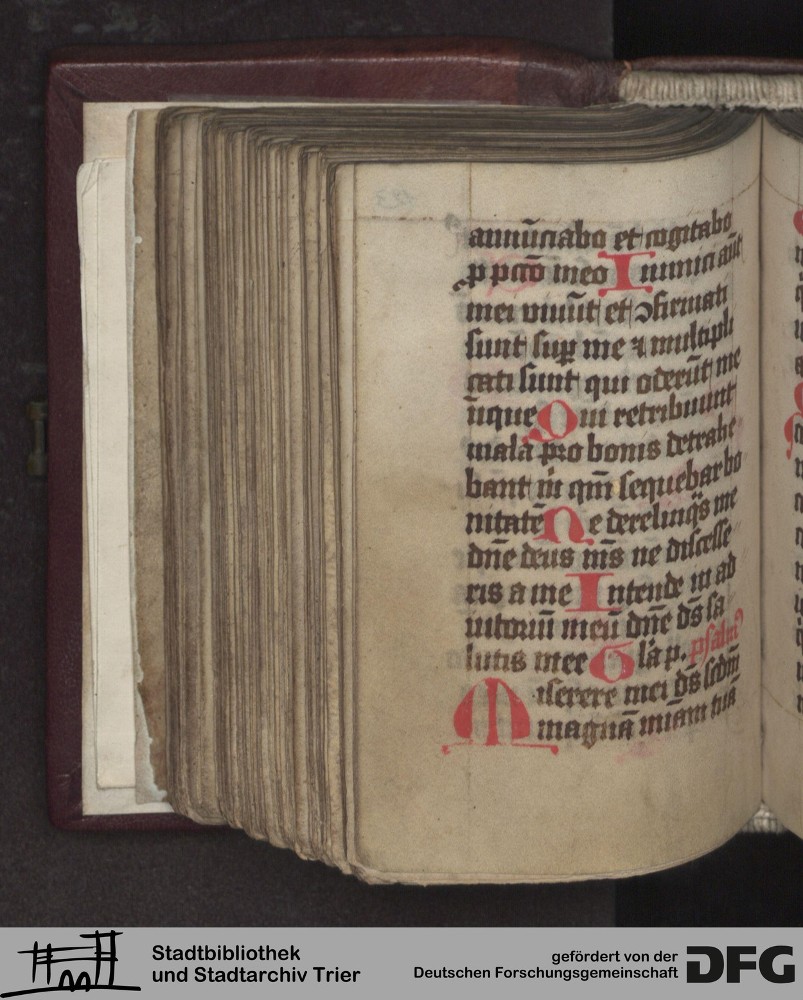 annūciabo et cogitabo
ꝓ pctō meo Inimici aūt
mei viuūt et ↄfirmati
sunt suꝑ me ⁊ multipli
cati sunt qui oderūt me
īique Qui retribuunt
mala pro bonis detrahe
bant m̄ qm̄ sequebar bo
nitatē Ne derelinqͥs me
dn̄e deus ms̄ ne discesse
ris a me Intende in ad
iutoriū meū dn̄e ds̄ sa
lutis mee Gl̄a p. psalmꝰ
Miserere mei ds̄ scdm̄
magnā miām tuā
Stadtbibliothek
und Stadtarchiv Trier
gefördert von der
Deutschen Forschungsgemeinschaft
DFG